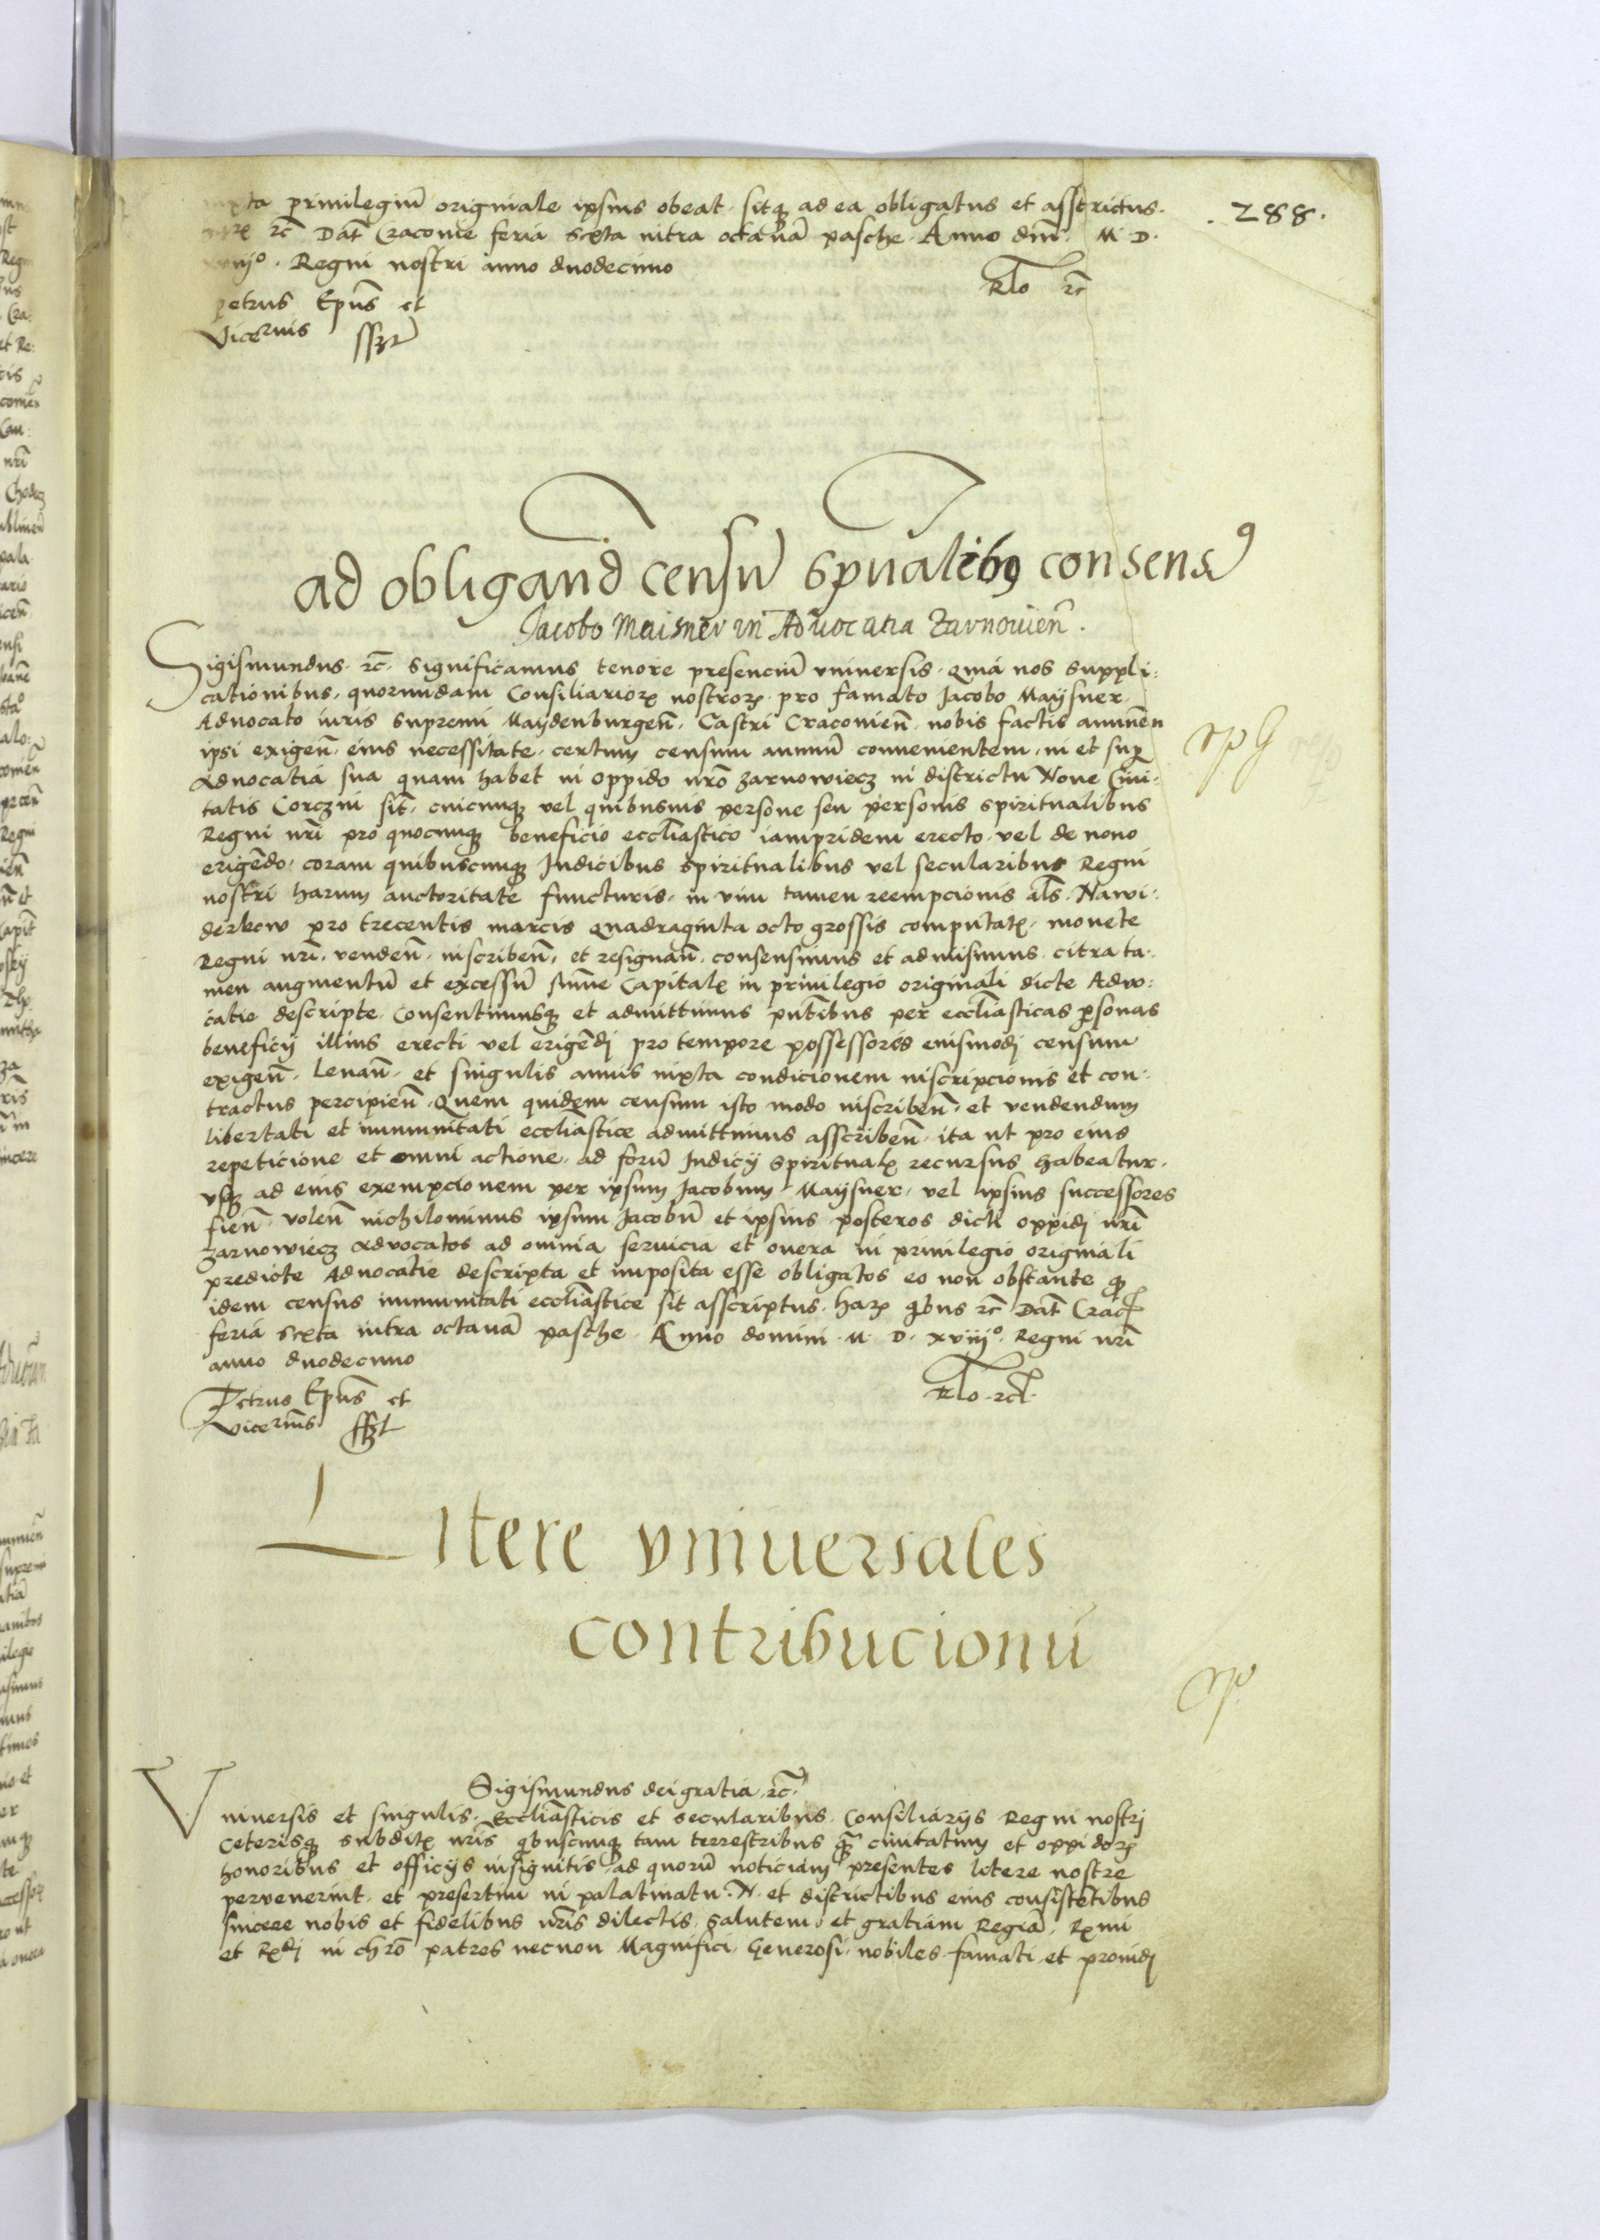 iuxta privilegiū originale ipsius obeat sitqꝫ ad ea obligatus et asstrictus. .288.
ꝛc̄ Dat̄ Cracovie feria sexta intra octavā pasche. Anno dn̄i M. D.
xviijº. Regni nostri anno duodecimo
Rlo ꝛc̄
petrus Ep̄us et
Vicecan̄s sszt
ad obligand censū sp̄ualibꝫ consensꝰ
Jacobo Maisner in Advocatia Zarnovien̄.
Sigismundus ꝛc̄. significamus tenore presenciū vniversis. quia nos suppli:
cationibus quorundam Consiliarioꝝ nostroꝝ pro famato Jacobo Maysner
Advocato iuris supremi Maydenburgen̄. Castri Cracovien̄. nobis factis annuen̄
ipsi exigen̄. eius necessitate. certum censum annuū convenientem. in et suꝑ
Advocatia sua quam habet in oppido nr̄o Zarnowiecz in districtu Nove Civi:
tatis Corczin sit̄. cuicunqꝫ vel quibusvis persone seu personis spiritualibus
Regni nr̄i pro quocunqꝫ beneficio eccl̄iastico iampridem erecto vel de novo
erigendo. coram quibuscunqꝫ Judicibus spiritualibus vel secularibus Regni
nostri harum auctoritate functuris. in vim tamen reempcionis al̄s Nawi:
derkow pro trecentis marcis quadraginta octo grossis computatꝭ. monete
Regni nr̄i. venden̄. inscriben̄. et resignan̄. consensimus et admisimus. citra ta.
men augmentū et excessū sūme Capitalꝭ in privilegio originali dicte Advo:
catie descripte. Consentimusqꝫ et admittimus pn̄tibus per eccl̄iasticas ꝑsonas
beneficij illius erecti vel erigendj pro tempore possessores eiusmodj censum
exigen̄. levan̄. et singulis annis iuxta condicionem inscripcionis et con:
tractus percipien̄. Quem quidem censum isto modo inscriben̄. et vendendum
libertati et immunitati eccl̄iastice admittimus asscriben̄. ita ut pro eius
repeticione et omni actione. ad forū Judicij spiritualꝭ recursus habeatur.
vsqꝫ ad eius exempcionem per ipsum Jacobum Maysner. vel ipsius successores
fien̄. volen̄ nichilominus ipsum Jacobū et ipsius posteros dicti oppidj nr̄i
Zarnowiecz Advocatos ad omnia servicia et onera in privilegio originali
predicte Advocatie descripta et imposita esse obligatos eo non obstante ꝙ
idem census immunitati eccl̄iastice sit asscriptus. Haꝝ qͥbus ꝛc̄ Dat̄ Crac̄
feria sexta intra octavā pasche. Anno domini. M. D. xviijº. Regni nr̄i
anno duodecimo
Rlo. ꝛc̄.
Petrus Ep̄us et
Vicecan̄s sszt
Litere vniversales
contribucionū
Sigismundus dei gratia. ꝛc̄.
Vniversis et singulis. Eccl̄iasticis et secularibus. Consiliarijs Regni nostrj
Ceterisqꝫ subditꝭ nr̄is qͥbuscunqꝫ tam terrestribus qꝫ̄ civitatum et oppidoꝝ
honoribus et officijs insignitis. ad quorū noticiam presentes litere nostre
pervenerint. et presertim in palatinatu. N. et districtibus eius consistētibus
sincere nobis et fidelibus nr̄is dilectis. Salutem et gratiam Regiā. Rx̄mi
et Rꝭdj in chr̄o patres necnon Magnifici. Generosi. nobiles. famati. et providj